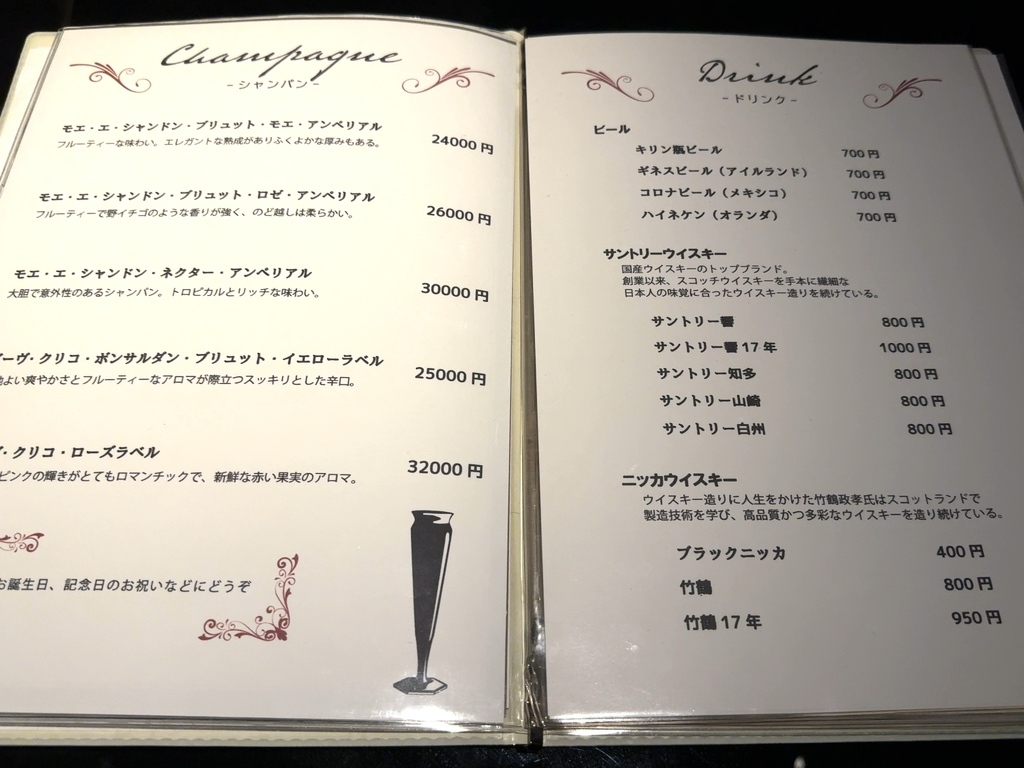 Champagne
-シャンパン-
モエ・エ・シャンドン・ブリュット・モエ・アンペリアル
フルーティーな味わい。エレガントな熟成がありふくよかな厚みもある。
24000 円
モエ・エ・シャンドン・ブリュット・ロゼ・アンペリアル
フルーティーで野イチゴのような香りが強く、のど越しは柔らかい。
26000 円
モエ・エ・シャンドン・ネクター・アンペリアル
大胆で意外性のあるシャンパン。トロピカルとリッチな味わい。
30000 円
ーヴ・クリコ・ポンサルダン・ブリュット・イエローラベル
よい爽やかさとフルーティーなアロマが際立つスッキリとした辛口。
25000 円
・クリコ・ローズラベル
ピンクの輝きがとてもロマンチックで、新鮮な赤い果実のアロマ。
32000 円
お誕生日、記念日のお祝いなどにどうぞ
Drink
-ドリンク-
ビール
キリン瓶ビール 700 円
ギネスビール（アイルランド） 700 円
コロナビール（メキシコ） 700 円
ハイネケン（オランダ） 700 円
サントリーウイスキー
国産ウイスキーのトップブランド。
創業以来、スコッチウイスキーを手本に繊細な
日本人の味覚に合ったウイスキー造りを続けている。
サントリー響 800 円
サントリー響 17 年 1000 円
サントリー知多 800 円
サントリー山崎 800 円
サントリー白州 800 円
ニッカウイスキー
ウイスキー造りに人生をかけた竹鶴政孝氏はスコットランドで
製造技術を学び、高品質かつ多彩なウイスキーを造り続けている。
ブラックニッカ 400 円
竹鶴 800 円
竹鶴 17 年 950 円